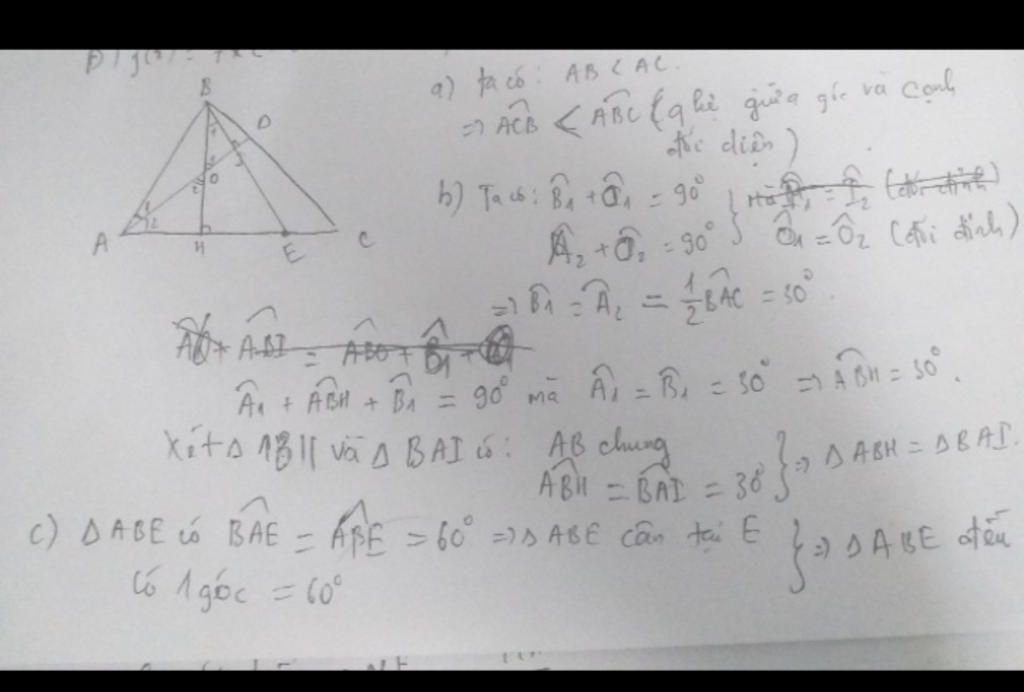 B
D
1
1
O
2
1
2
A
H
E
C
a) Ta có: AB < AC.
=> ACB̂ < ABĈ (q hệ giữa góc và cạnh
đối diện)
b) Ta có: B̂₁ + Ô₁ = 90°
Â₂ + Ô₂ = 90° } Ô₁ = Ô₂ (đối đỉnh)
=> B̂₁ = Â₂ = 1/2 BAĈ = 30°.
Â₁ + ABĤ + B̂₁ = 90° mà Â₁ = B̂₁ = 30° => ABĤ = 30°.
Xét Δ ABH và Δ BAI có: AB chung
ABĤ = BAÎ = 30° } => Δ ABH = Δ BAI.
c) Δ ABE có BAÊ = ABÊ = 60° => Δ ABE cân tại E
có 1 góc = 60° } => Δ ABE đều